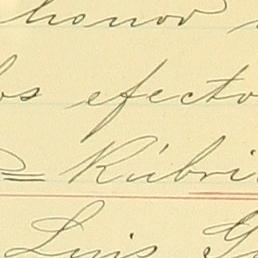 honor
los efecto
= Rúbri
Luis G